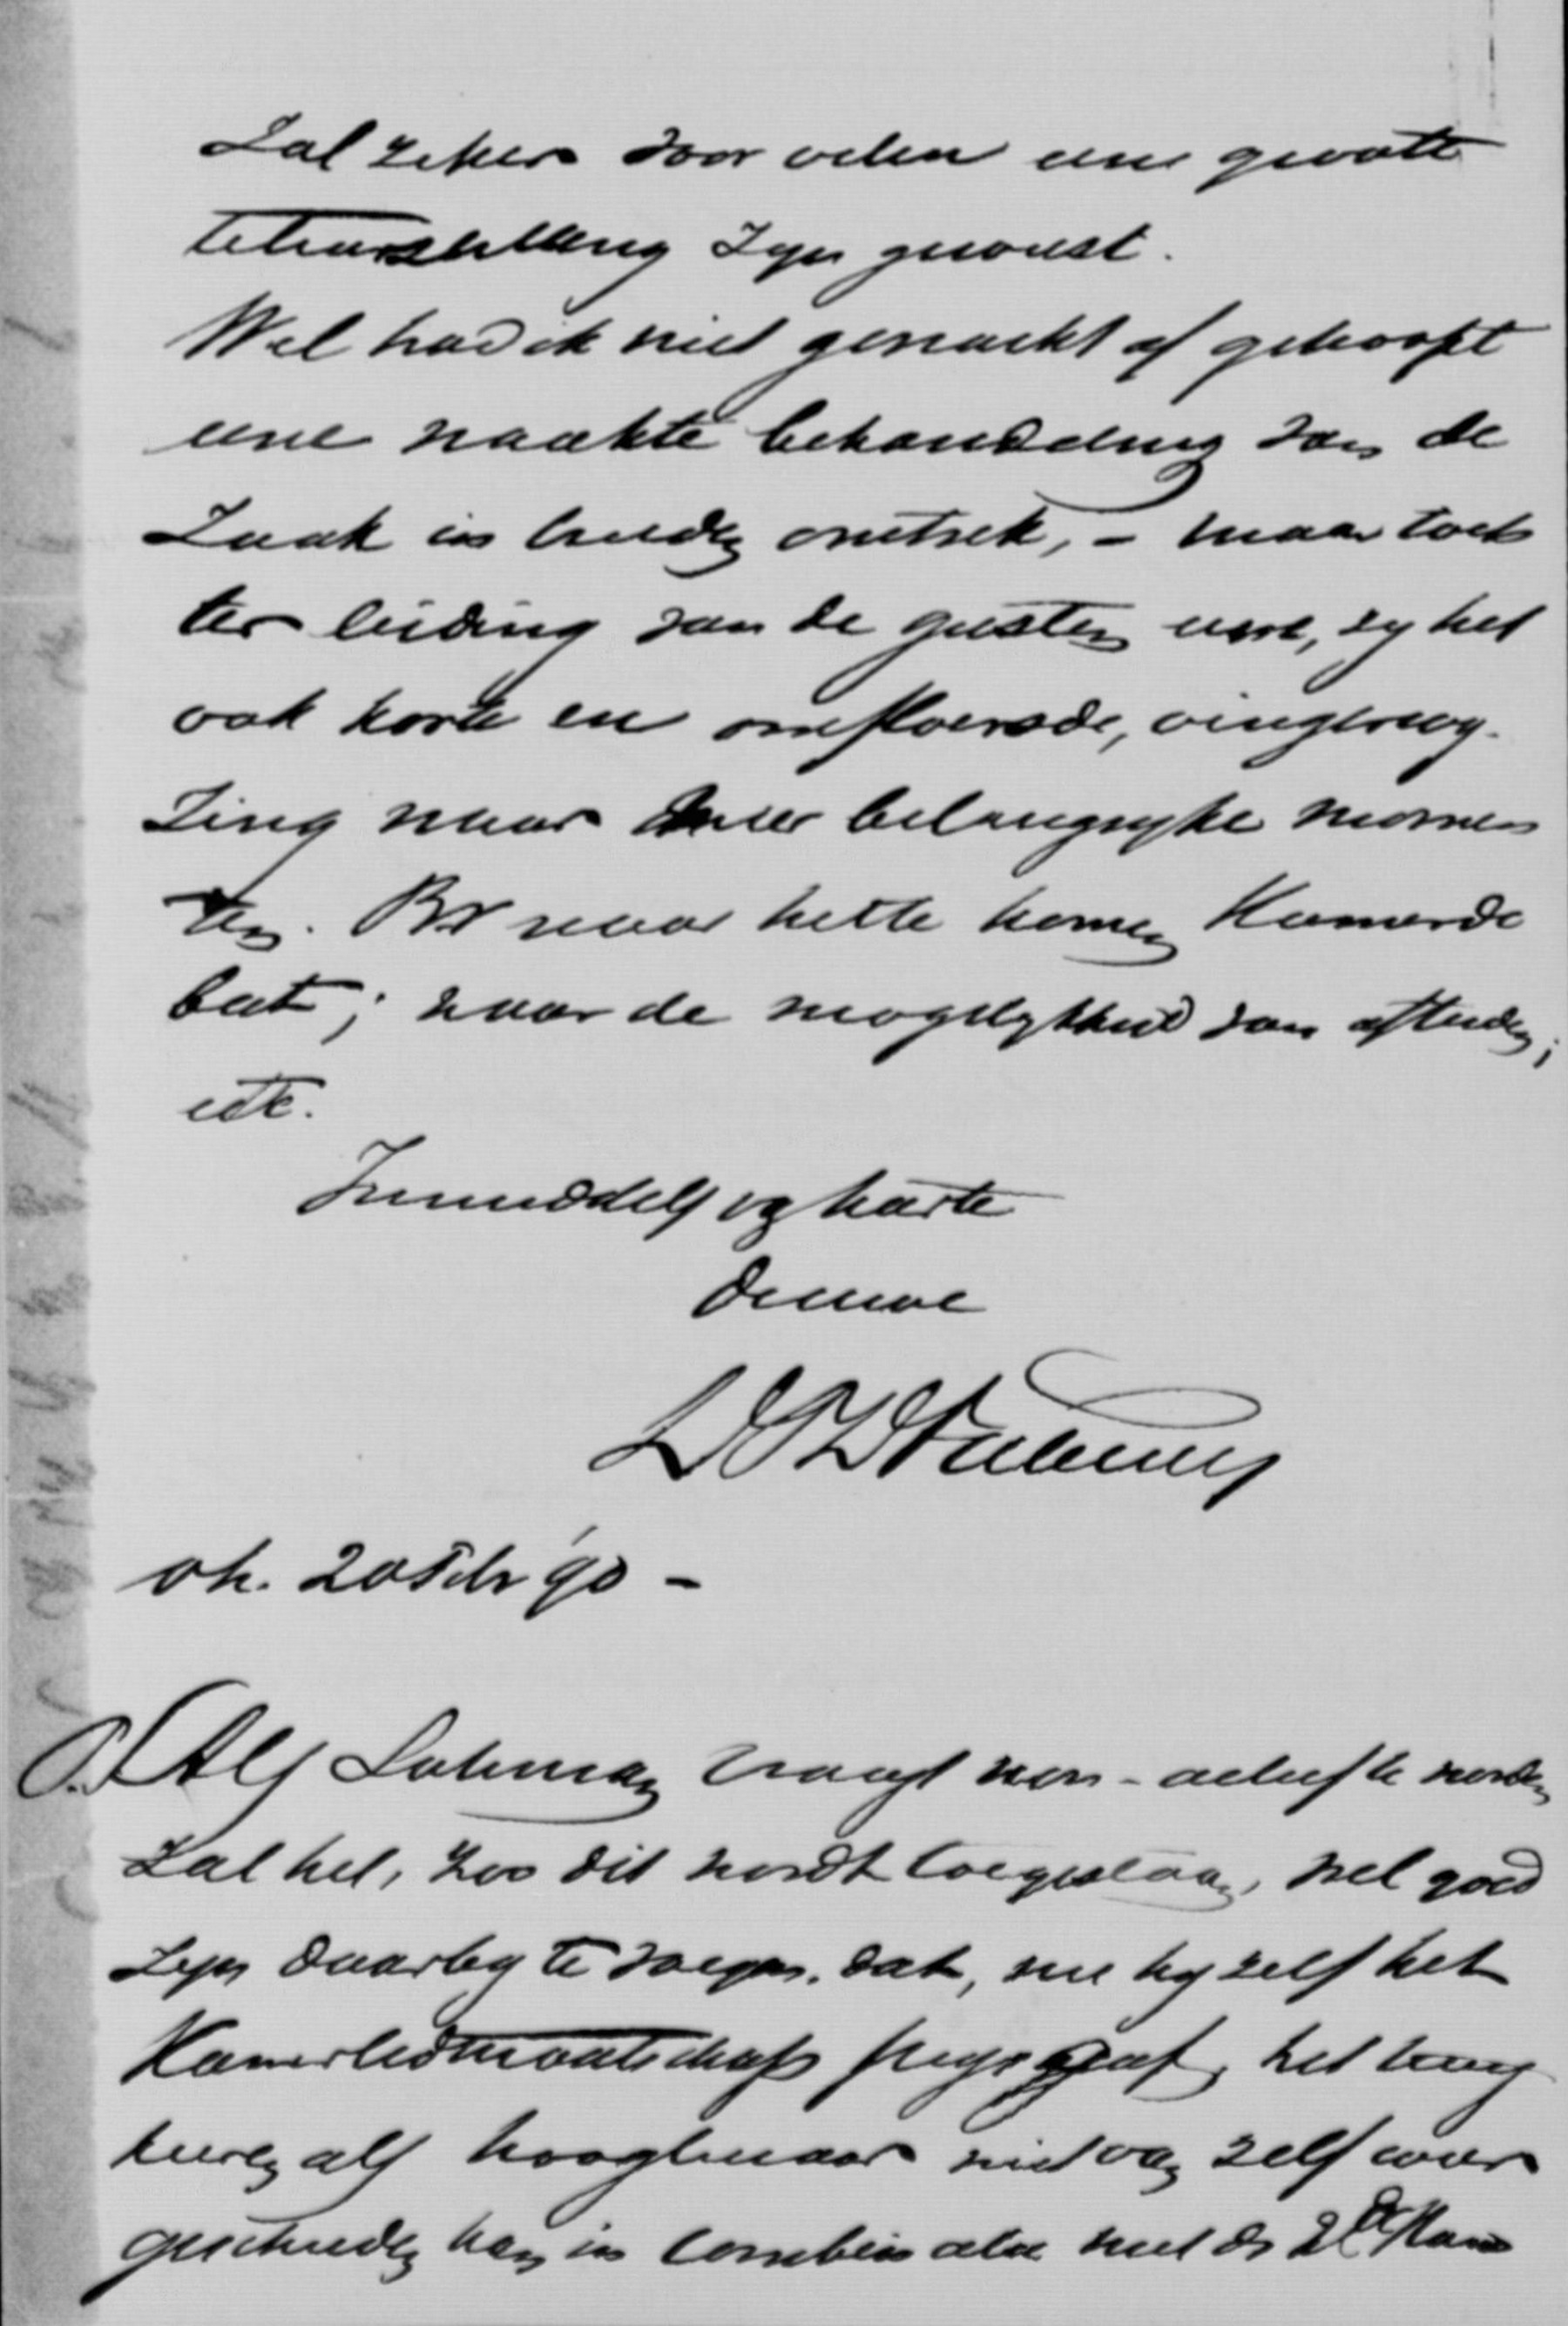 Zal zeker voor velen een groote
teleurstelling zyn geweest.
Wel had ik niet gewacht of gehoopt
eene naakte behandeling van de
Zaak in breede omtrek, - maar toch
ter leiding van de geesten eene, zy het
ook korte en omfloersde, vingerwy-
zing naar zeer belangryke momen
ten. Bv naar hette komen Kamerde
bat; naar de mogelykheid van aftreden;
etc.
Inmiddels van harte
de uwe
DPDFabius
vh. 20 Feb '90 -
P.S. Als Lohman vraagt non-actief te worden
Zal het, zoo dit wordt toegestaan, wel goed
zyn daarby te voegen, dat, nu hy zelf het
Kamerlidmaatschap prys gaf, het terug
keeren als hoogleeraar niet van zelf weer
geschieden kan in combinatie met de 2de Kam